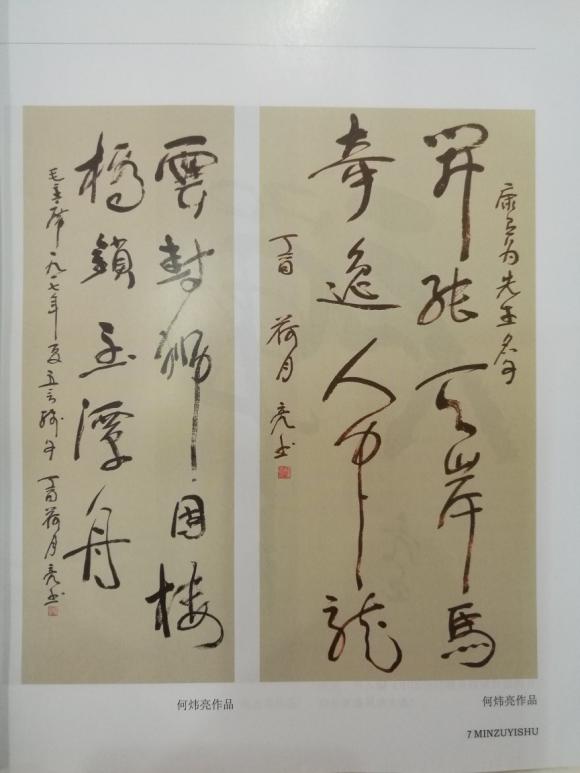 康有为先生名句
開張天岸馬
奇逸人中龍
丁酉 荷月 亮书
雲封狮固楼
橋鎖玉潭舟
毛主席一九一七年夏五言联句 丁酉荷月亮书
何炜亮作品
何炜亮作品
7 MINZUYISHU